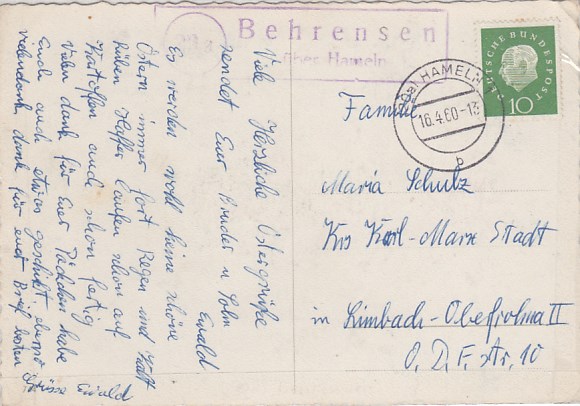 Behrensen
über Hameln
DEUTSCHE BUNDESPOST
10
HAMELN
16.4.60-13
b
Familie
Maria Schulz
Krs Karl-Marx Stadt
in Limbach-Oberfrohna II
O. D. F. str. 10
Viele Herzliche Ostergrüße
sendet Eur Bruder u Sohn
Ewald
Es werden wohl keine schöne
Ostern immer fort Regen und Kalt
Rüben Haffer laufen schon auf
Kartoffeln auch schon fertig
Vielen dank für Euer Päckchen habe
Euch auch etwas geschickt,
vielendank dank für eur Brief besten
Grüsse Ewald